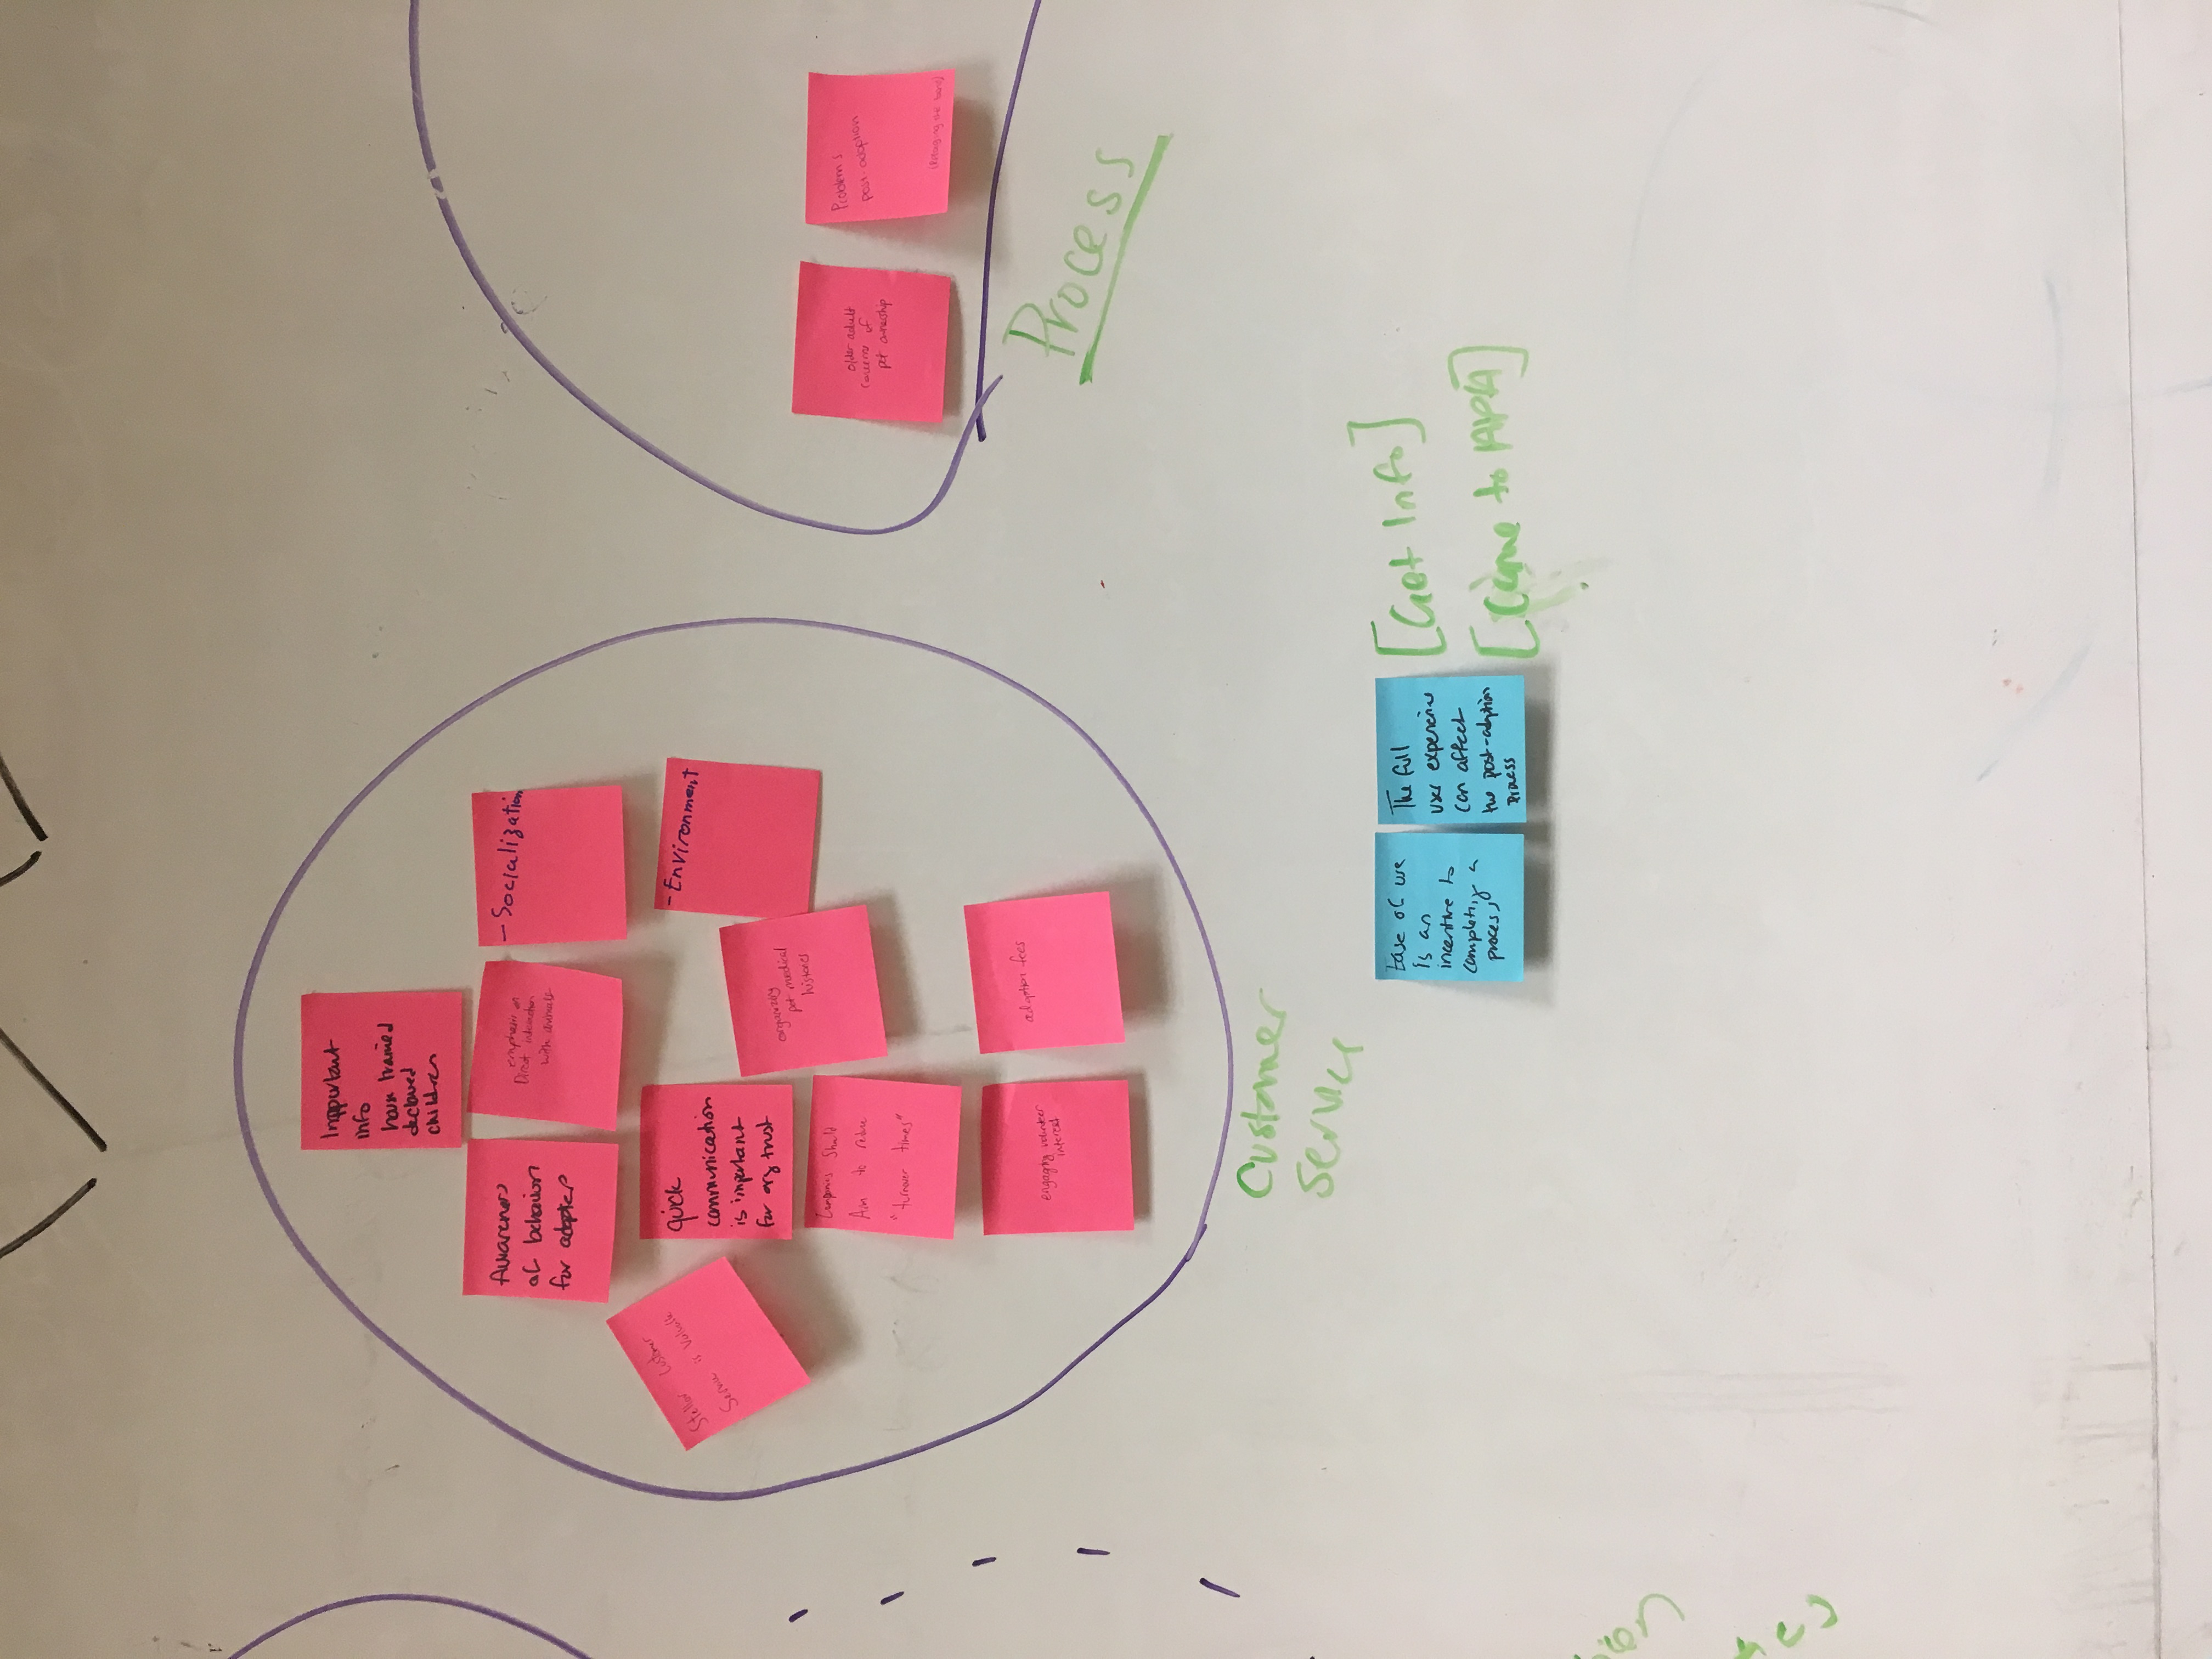 Impportant
info
house trained
declawed
children
Awareness
of behavior
for adopters
emphasis on
Direct interaction
with animals
- Socialization
Stellar Customer
Service is Valuable
quick
communication
is important
for org trust
organizing
pet medical
histories
- Environment
Companies Should
Aim to reduce
"turnover times"
engaging volunteer
interest
adoption fees
Customer
Service
older adult
concerns of
pet ownership
Problems
post-adoption
Process
Ease of use
is an
incentive to
completing a
process
The full
user experience
can affect
the post-adoption
process
[Get Info]
[Come to APA]